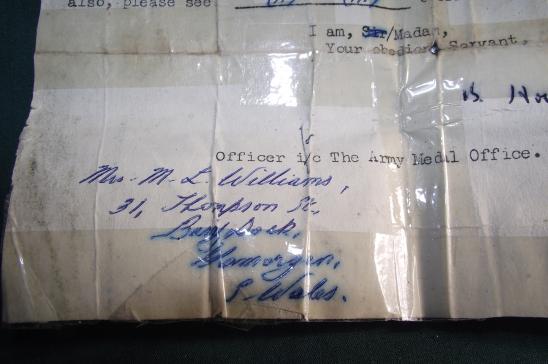 also, please see
I am, Sir/Madam,
Your obedient Servant,
Officer i/c The Army Medal Office.
Mrs. M. L. Williams,
31, Thompson St.,
Barry Dock,
Glamorgan,
S. Wales.